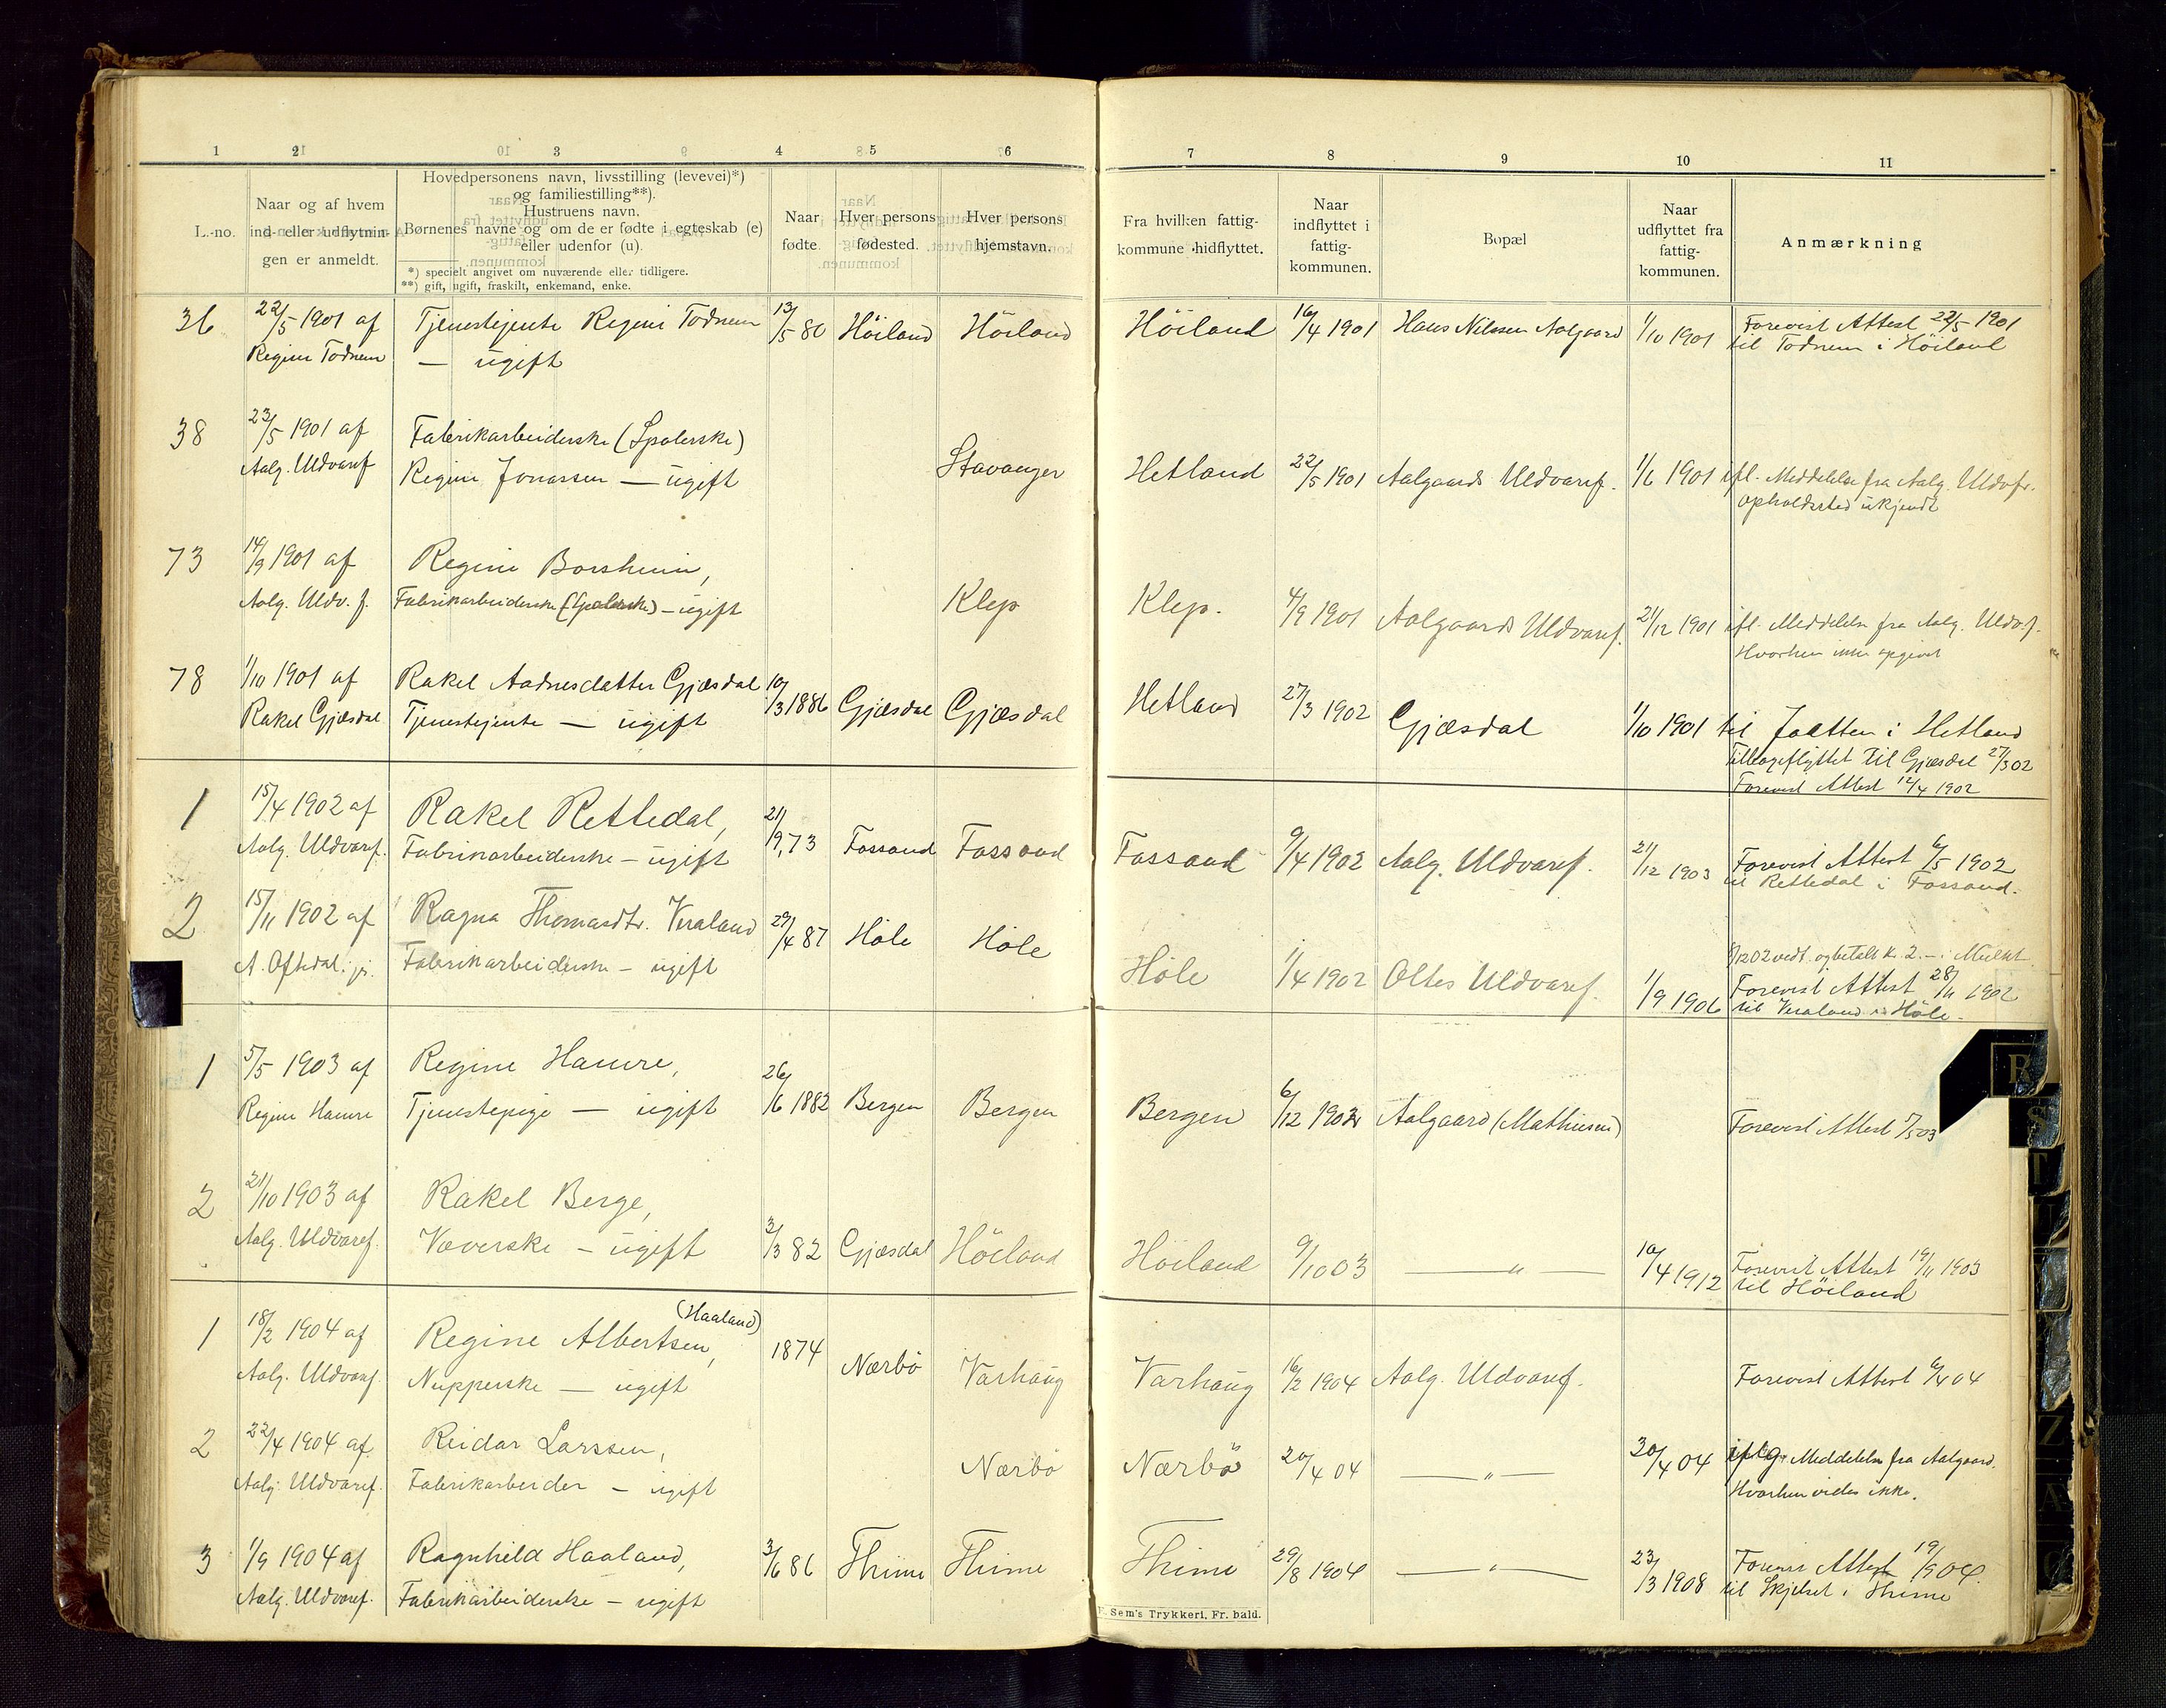 1 2 3 4 5 6
7 8 9 10 11
L.-no.
Naar og af hvem
ind- eller udflytnin-
gen er anmeldt.
Hovedpersonens navn, livsstilling (levevei)*)
og familiestilling**).
Hustruens navn.
Børnenes navne og om de er fødte i egteskab (e)
eller udenfor (u).
*) specielt angivet om nuværende eller tidligere.
**) gift, ugift, fraskilt, enkemand, enke.
Naar
fødte.
Hver persons
fødested.
Hver persons
hjemstavn.
Fra hvilken fattig-
kommune hidflyttet.
Naar
indflyttet i
fattig-
kommunen.
Bopæl
Naar
udflyttet fra
fattig-
kommunen.
Anmærkning
36 22/5 1901 af Tjenestejente Regine Todnem 13/5 80 Höiland Höiland Höiland 16/4 1901 Hans Nilssen Aalgaard 1/10 1901 Forevist Attest 22/5 1901
Regine Todnem — ugift til Todnem i Höiland
38 23/5 1901 af Fabrikarbeiderske (Spolerske)
Aalg. Uldvaref Regine Jonassen — ugift Stavanger Hetland 22/5 1901 Aalgaards Uldvaref. 1/6 1901 ifl. Meddelelse fra Aalg. Uldvf.
Opholdssted ukjendt
73 14/9 1901 af Regine Borsheim,
Aalg. Uldv. f. Fabrikarbeiderske (Spolerske) — ugift Klep Klep. 4/9 1901 Aalgaards Uldvaref. 21/12 1901 ifl. Meddelelse fra Aalg. Uldv.f.
Hvorhen ikke opgivet
78 1/10 1901 af Rakel Aadnesdatter Gjæsdal 10/3 1886 Gjæsdal Gjæsdal Hetland 27/3 1902 Gjæsdal 1/10 1901 til Jaatten i Hetland
Rakel Gjæsdal Tjenestejente — ugift Tilbageflyttet til Gjæsdal 27/3 02
Forevist Attest 12/4 1902
1 15/4 1902 af Rakel Rettedal, 21/9, 73 Fossand Fossand Fossand 9/4 1902 Aalg. Uldvaref. 21/12 1903 Forevist Attest 6/5 1902
Aalg. Uldvaref. Fabrikarbeiderske — ugift til Rettedal i Fossand.
2 15/11 1902 af Ragna Thomasdtr. Veraland 29/4 87 Höle Höle Höle 1/4 1902 Oltes Uldvaref. 1/9 1906 8/12 02 vedt. og betalt k. 2. — i Mulkt
A. Oftedal. jr. Fabrikarbeiderske — ugift Forevist Attest 28/11 1902
til Veraland i Höle.
1 5/5 1903 af Regine Hamre, 26/6 1882 Bergen Bergen Bergen 6/12 1902 Aalgaard (Mathiesen) Forevist Attest 5/5 03
Regine Hamre Tjenestepige — ugift
2 21/10 1903 af Rakel Berge,
Aalg. Uldvaref. Væverske — ugift 3/3 82 Gjæsdal Höiland Höiland 9/10 03 — „ — 10/4 1912 Forevist Attest 19/11 1903
til Höiland
1 18/2 1904 af Regine Albertsen, (Haaland) 1874 Nærbö Varhaug Varhaug 16/2 1904 Aalg. Uldvaref. Forevist Attest 6/4 04
Aalg. Uldvaref. Nupperske — ugift
2 22/4 1904 af Reidar Larssen, Nærbö Nærbö 20/4 04 — „ — 30/4 04 iflg. Meddelelse fra Aalgaard.
Aalg. Uldvaref. Fabrikarbeider — ugift Hvorhen vides ikke.
3 1/9 1904 af Ragnhild Haaland, 3/6 86 Thime Thime Thime 29/8 1904 — „ — 23/3 1908 Forevist Attest 19/9 04.
Aalg. Uldvaref. Fabrikarbeiderske — ugift til Skjelset i Thime
Sem's Trykkeri, Fr. hald.
R
S
T
Z